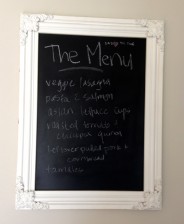 The Menu
veggie lasagna
pasta & salmon
asian lettuce cups
tomato &
quinoa
leftover pulled pork &
cornbread